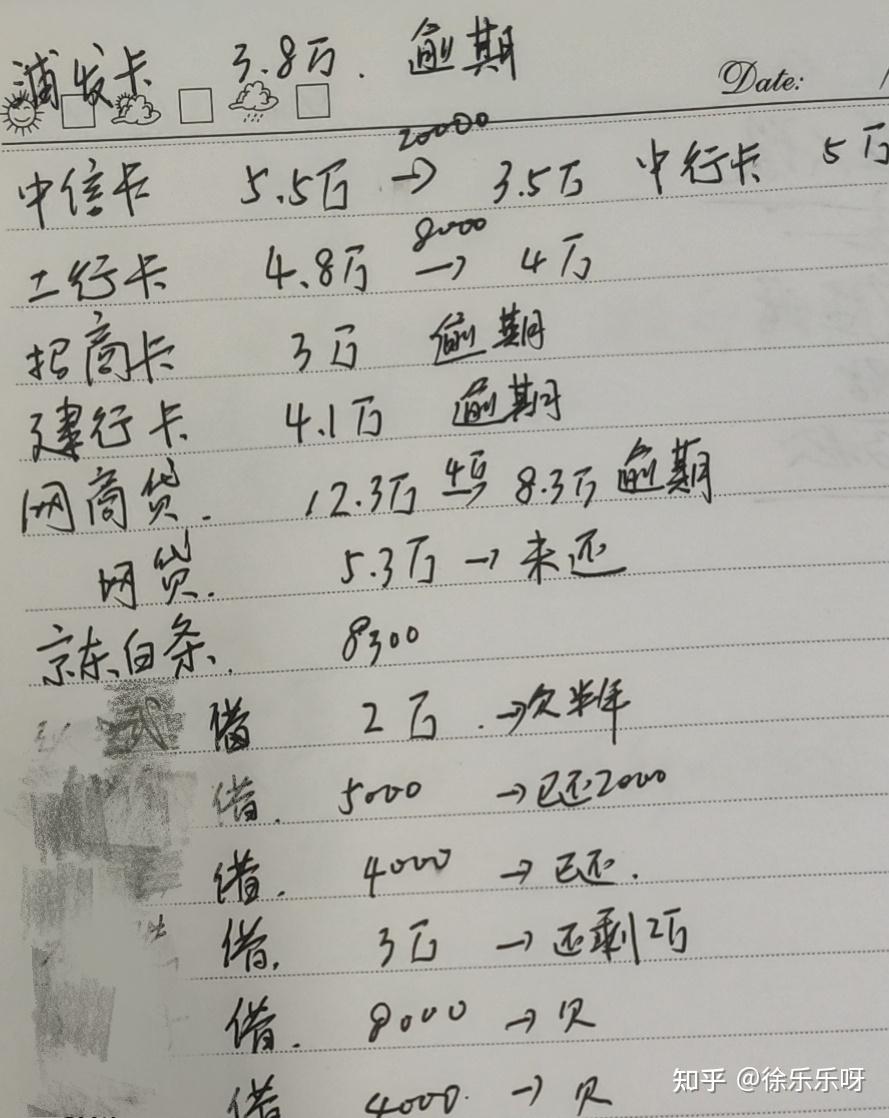 浦发卡 3.8万. 逾期
Date:
20000
中信卡 5.5万 → 3.5万 中行卡 5万
8000
工行卡 4.8万 → 4万
招商卡 3万 逾期
建行卡 4.1万 逾期
4万
网商贷. 12.3万 → 8.3万 逾期
网贷. 5.3万 → 未还
京东白条. 8300
借 2万. → 欠半年
借. 5000 → 已还2000
借. 4000 → 已还.
借. 3万 → 还剩2万
借. 8000 → 欠
借 4000. → 欠
知乎 @徐乐乐呀